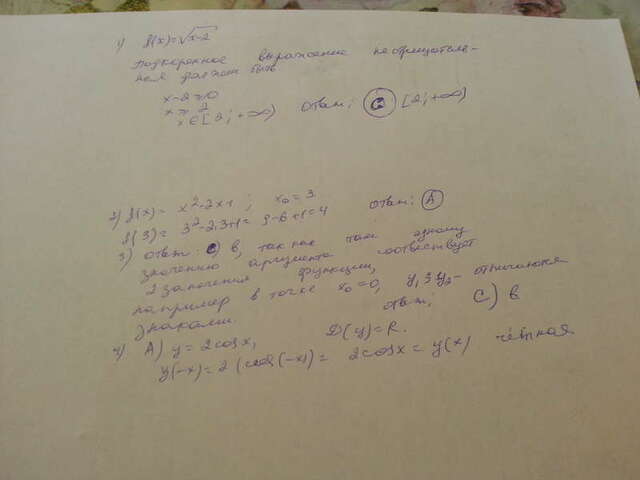 1) f(x)=√x-2
Подкоренное выражение неотрицатель-
ным должен быть
x-2≥0
x≥2
x∈[2;+∞) ответ: C [2;+∞)
2) f(x)= x²-2x+1; x₀=3.
f(3)= 3²-2·3+1= 9-6+1=4 ответ: A
3) ответ: C) в, так как там одному
значению аргумента соотвествует
2 значения функции,
например в точке x₀=0, y₁ y₂- отличаются
знаками. ответ: C) в
4) A) y=2cosx, D(y)=R.
y(-x)=2(cos(-x)= 2cosx=y(x) чётная